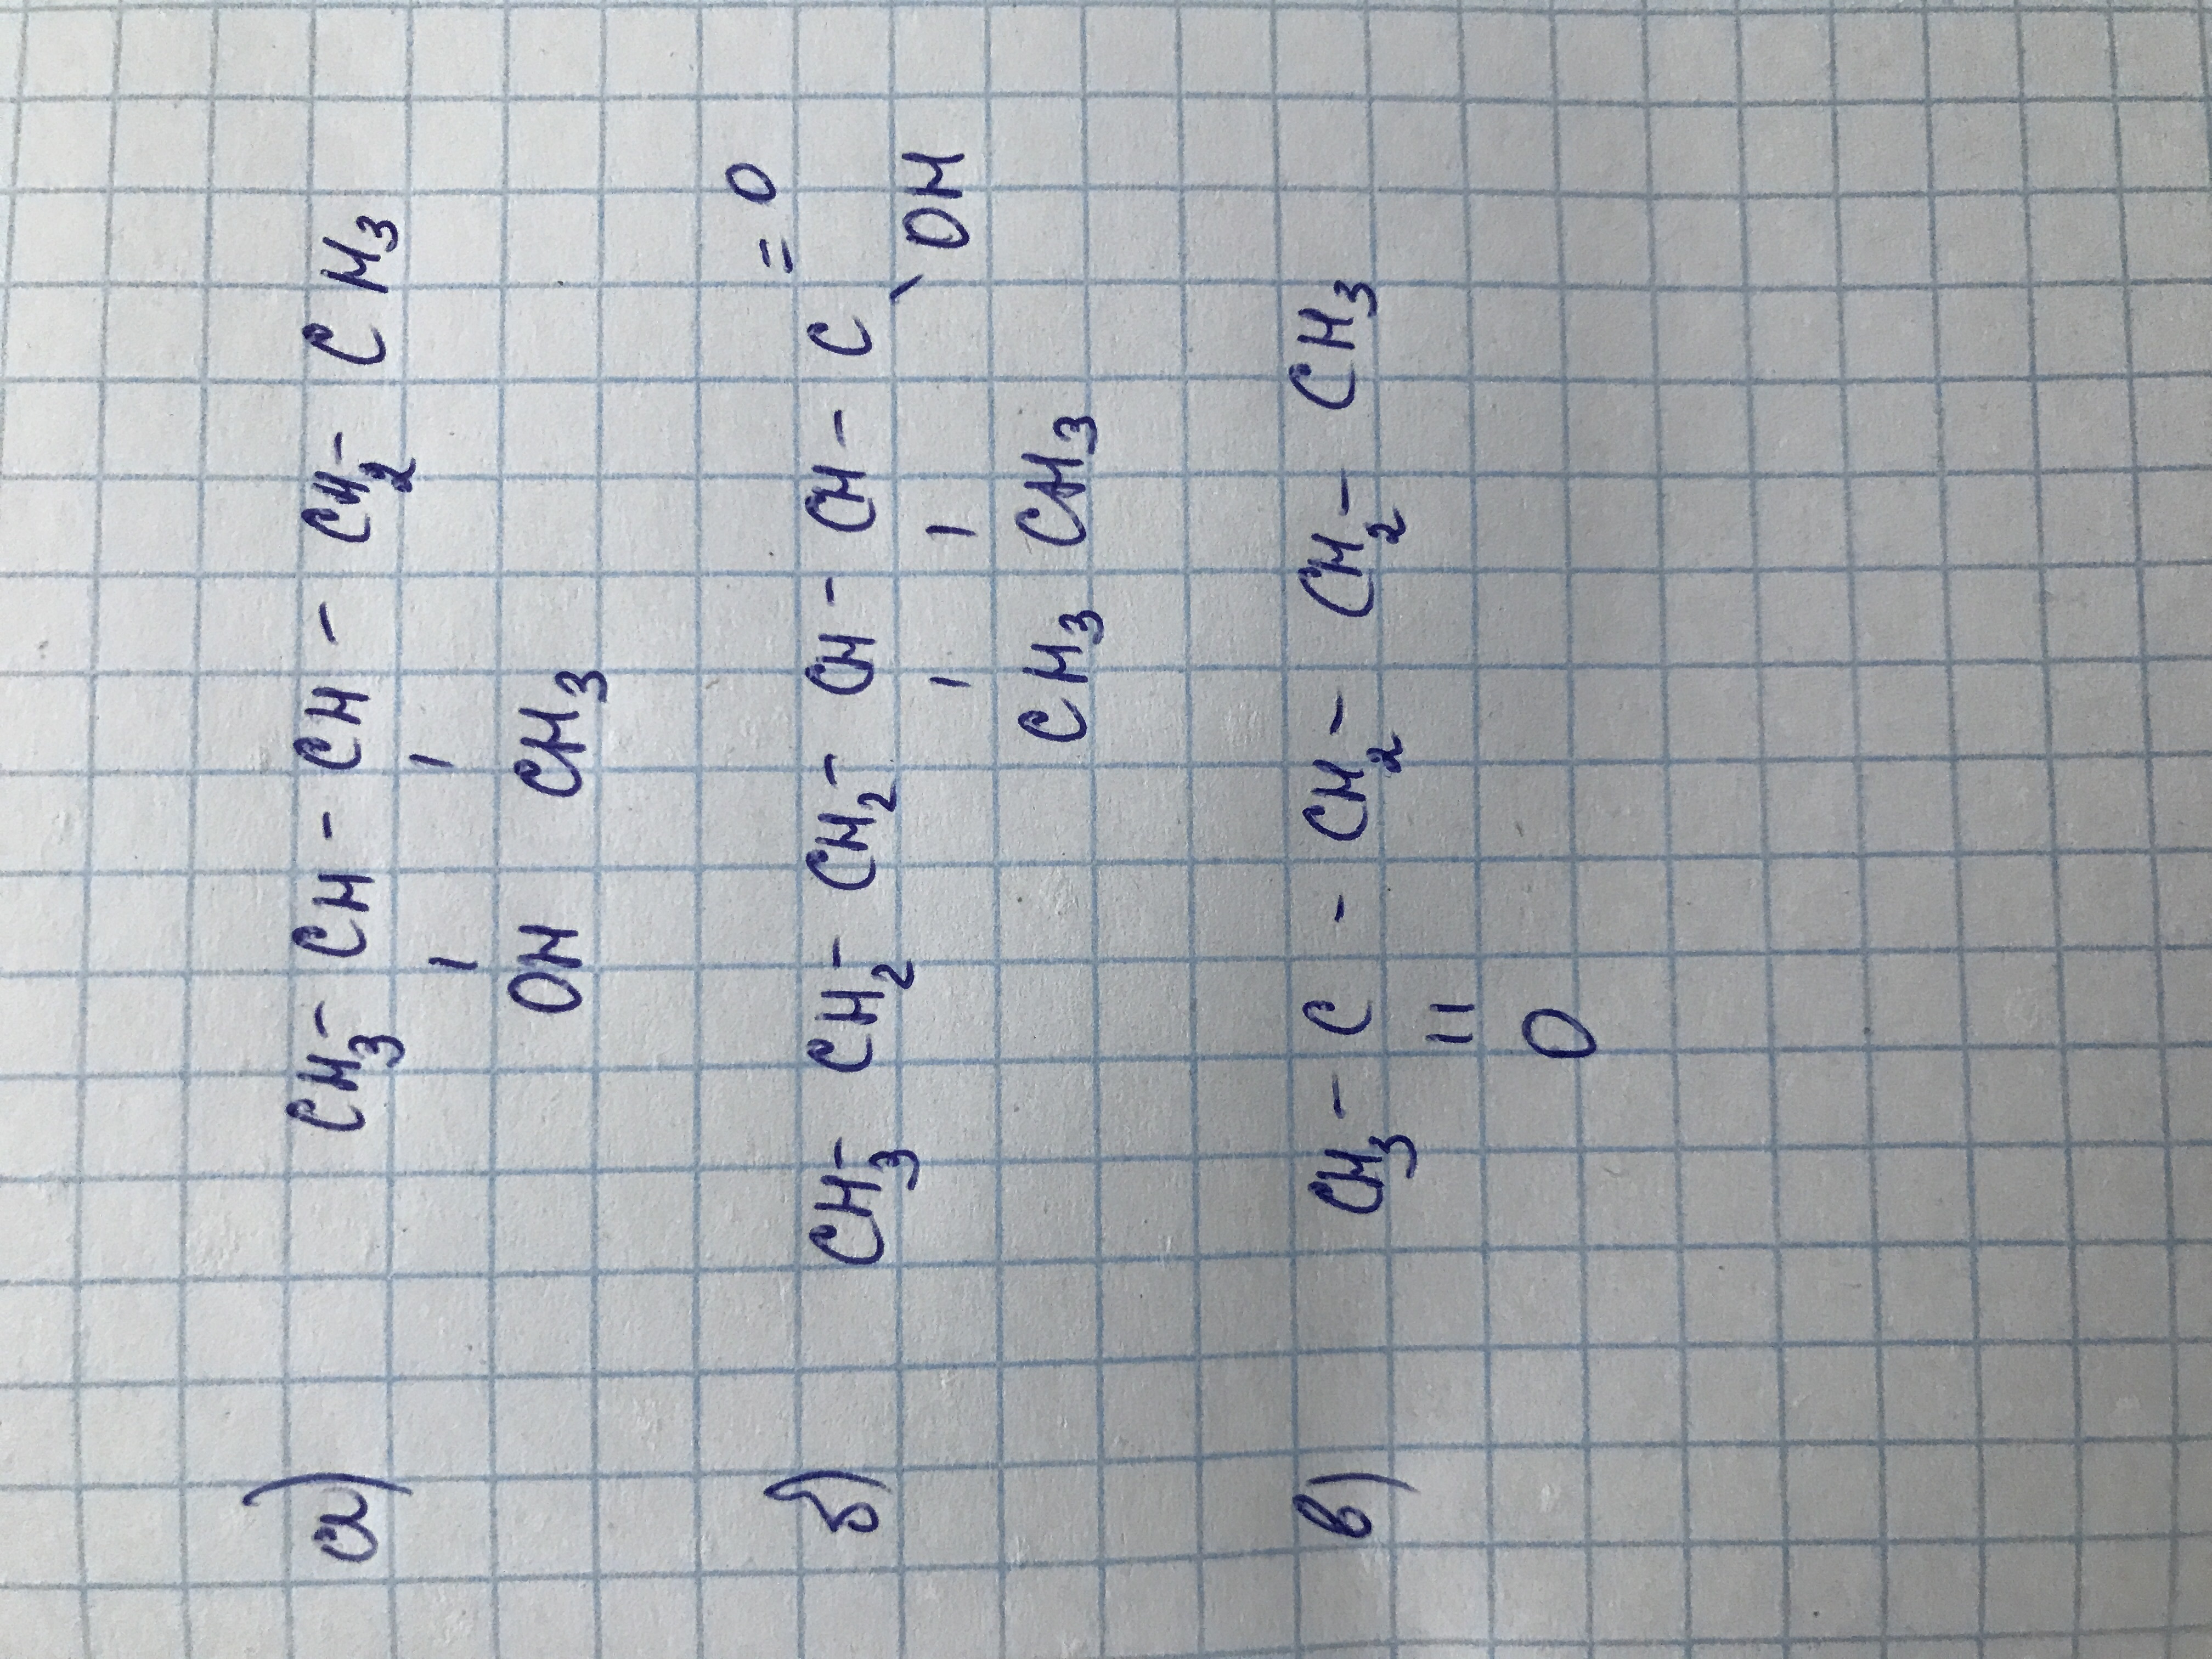 а) CH₃ - CH - CH - CH₂ - CH₃
OH CH₃
= O
б) CH₃ - CH₂ - CH₂ - CH - CH - C
\ OH
CH₃ CH₃
в) CH₃ - C - CH₂ - CH₂ - CH₃
O